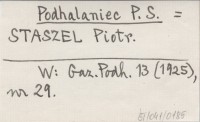 Podhalaniec P. S. =
STASZEL Piotr.
W: Gaz. Podh. 13 (1925),
nr 29.